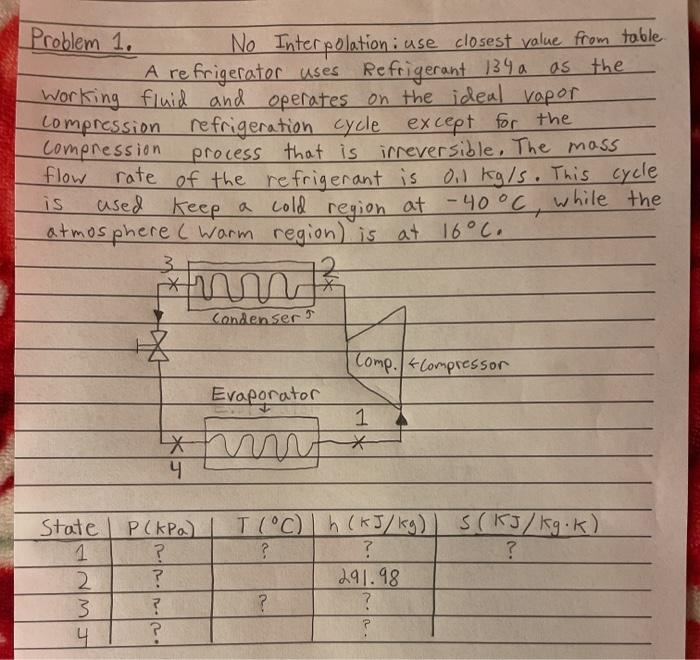 Problem 1. No Interpolation: use closest value from table
A refrigerator uses Refrigerant 134a as the
working fluid and operates on the ideal vapor
compression refrigeration cycle except for the
compression process that is irreversible. The mass
flow rate of the refrigerant is 0.1 kg/s. This cycle
is used keep a cold region at -40 °C, while the
atmosphere (warm region) is at 16°C.
3 2
Condenser
Comp. ←Compressor
Evaporator
1
4
State P(kPa) T(°C) h (kJ/kg) S(kJ/kg·K)
1 ? ? ? ?
2 ? 291.98
3 ? ? ?
4 ? ?